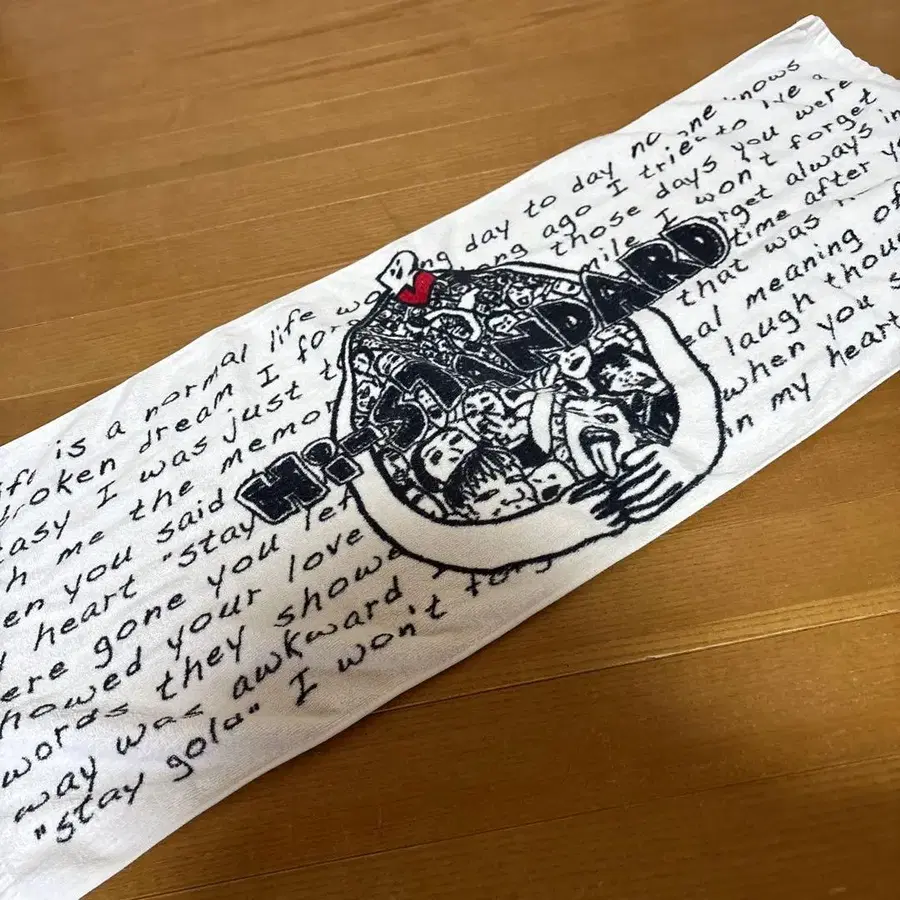 life is a normal life day to day no one knows
broken dream I ago I tried to live a
easy I was just those days you were
h me the memor mile I won't forget
en you said rget always in
y heart "stay time after y
ere gone you lef that was
howed your love eal meaning of
words they showe laugh thou
way was awkward when you s
"stay gold" I won't forg in my heart
Hi-STANDARD